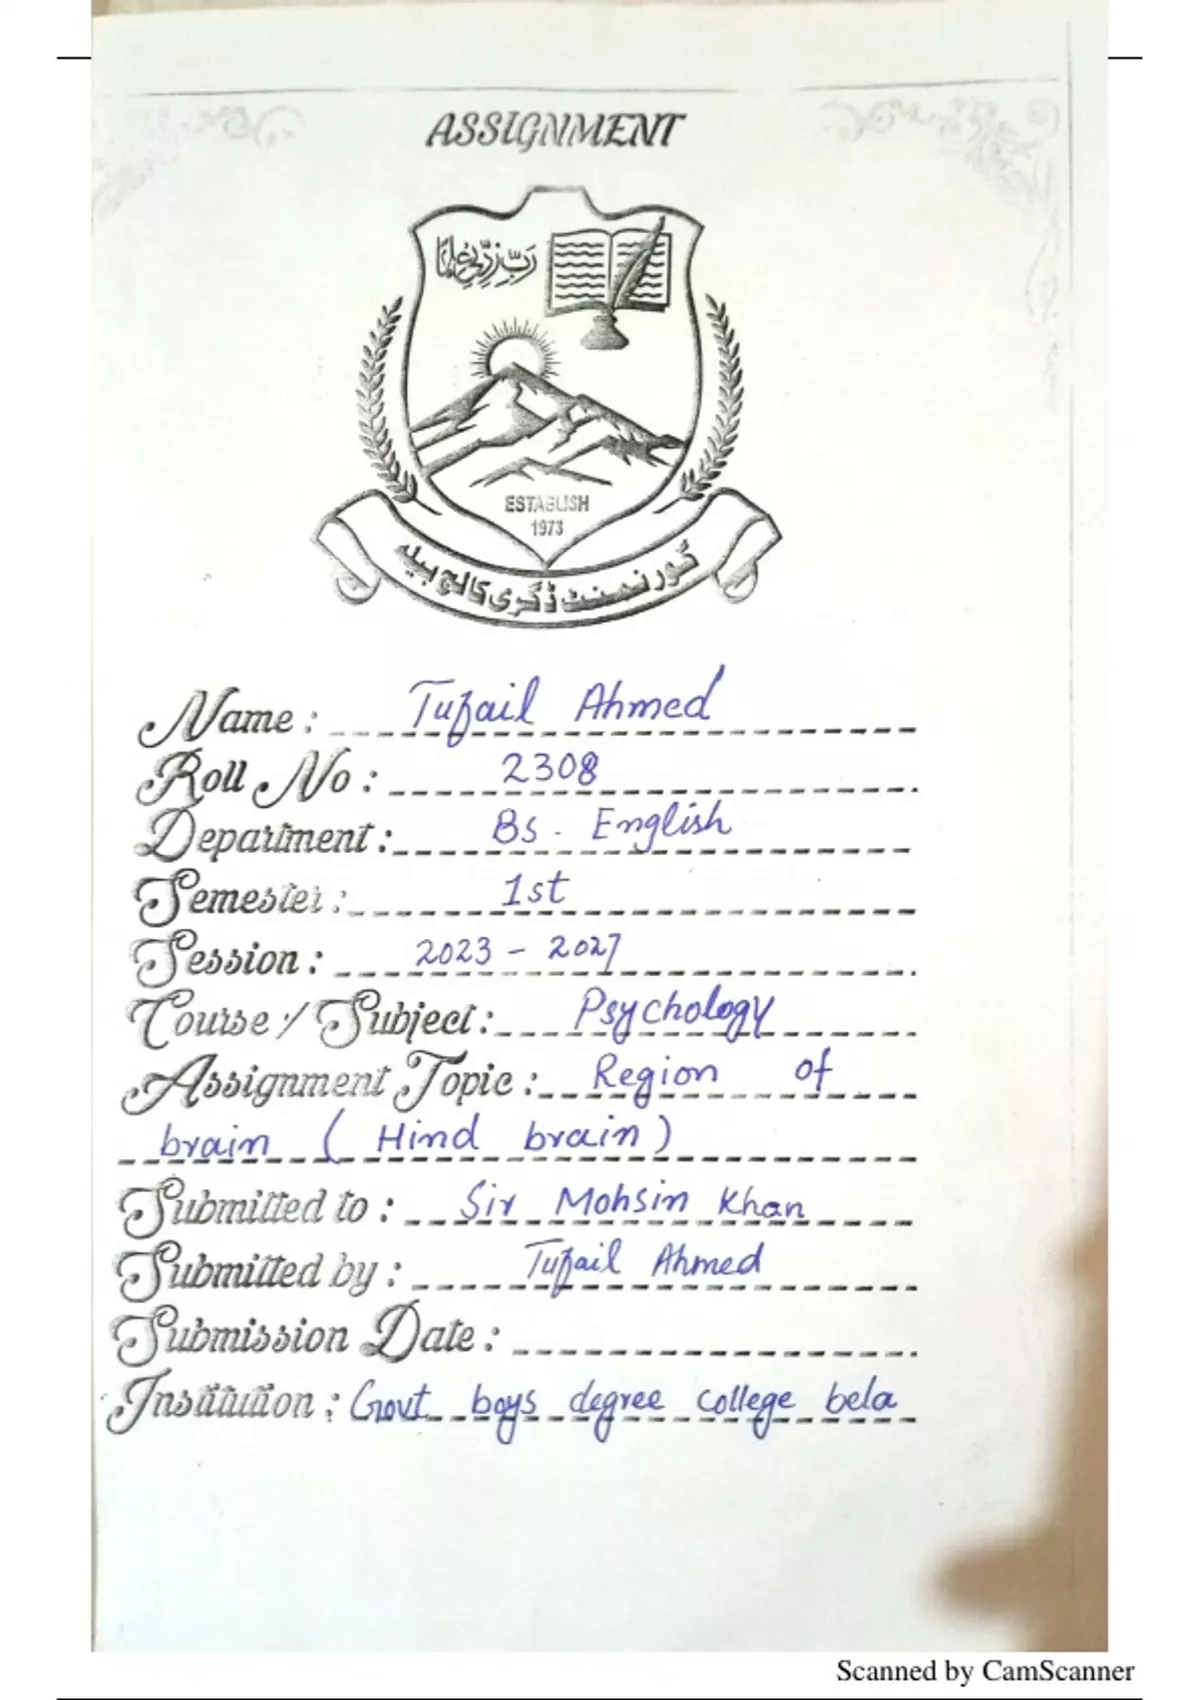 ASSIGNMENT
رَبِّ زِدْنِي عِلْمًا
ESTABLISH
1973
گورنمنٹ ڈگری کالج بیلہ
Name : Tufail Ahmed
Roll No : 2308
Department : Bs - English
Semester : 1st
Session : 2023 - 2027
Course / Subject : Psychology
Assignment Topic : Region of
brain ( Hind brain )
Submitted to : Sir Mohsin Khan
Submitted by : Tufail Ahmed
Submission Date :
Institution : Govt boys degree college bela
Scanned by CamScanner